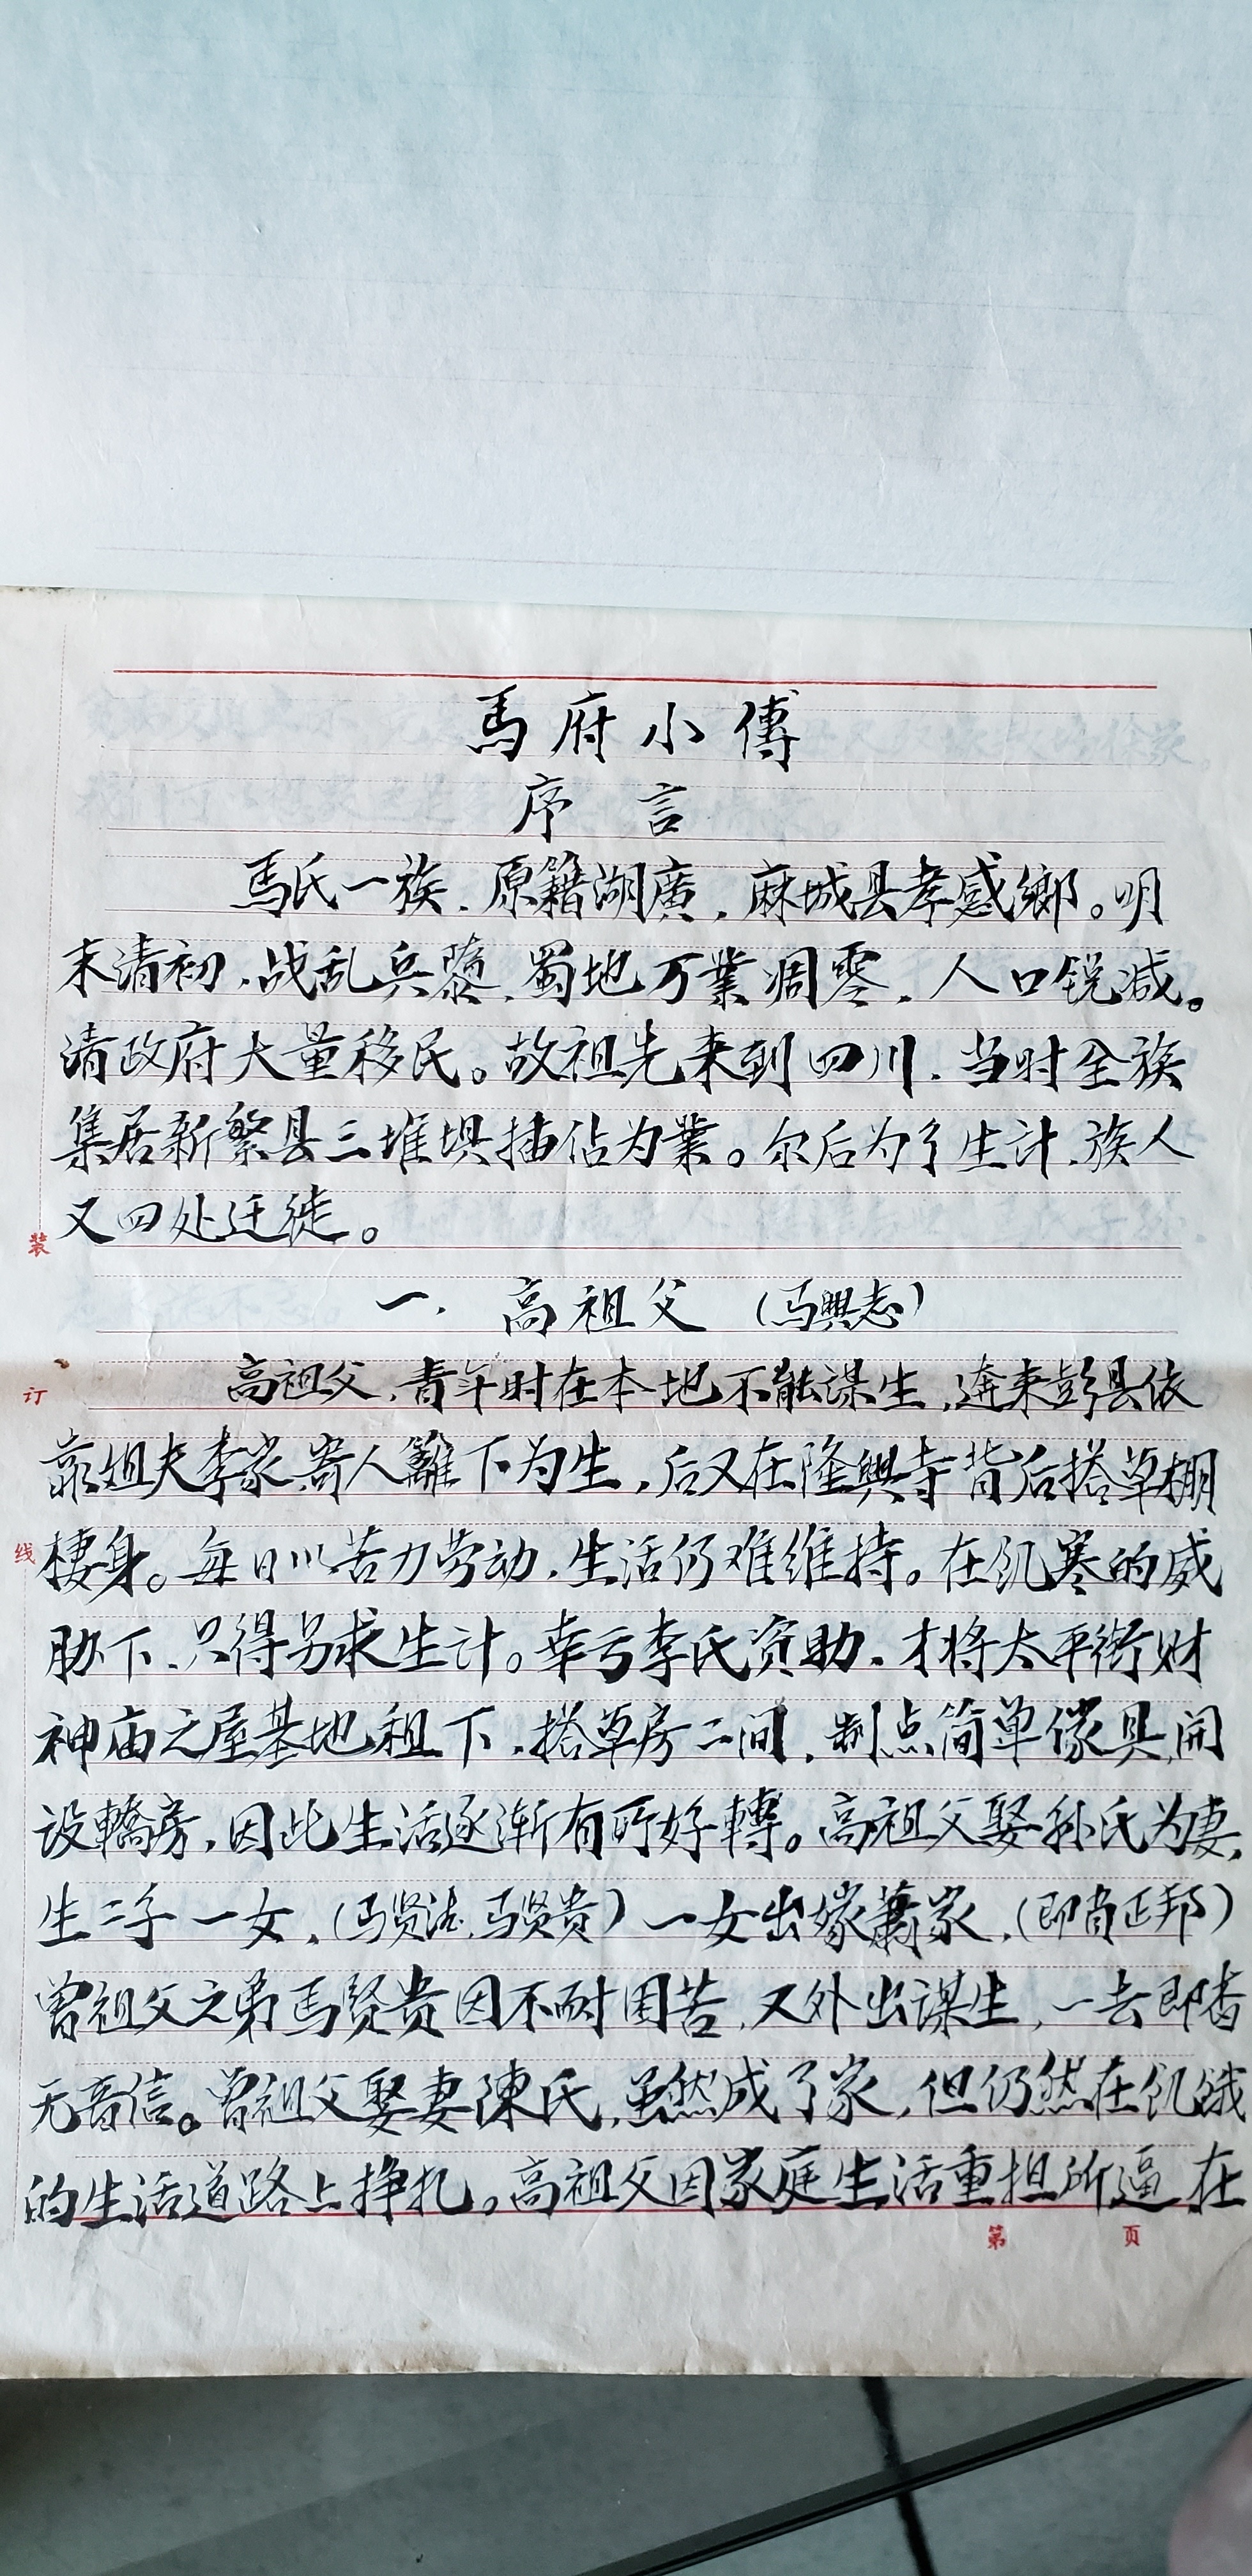 馬府小傅
序言
馬氏一族.原籍湖廣.麻城县孝感鄉。明
末清初.战乱兵隳.蜀地万業凋零.人口锐减。
清政府大量移民。故祖先来到四川.当时全族
集居新繁县三堆坝插佔为業。尔后为了生计.族人
又四处迁徙。
装
一.高祖父(马興志)
高祖父.青年时在本地不能谋生.逩来彭县依
订
靠姐夫李家寄人籬下为生.后又在隆興寺背后搭草棚
棲身。每日以苦力劳动.生活仍难维持。在饥寒的威
线
胁下.只得另求生计。幸亏李氏资助.才将太平街财
神庙之屋基地租下.搭草房二间.制点简单傢具開
设轎房.因此生活逐渐有所好轉。高祖父娶孙氏为妻.
生二子一女.(马贤法.马贤贵)一女出嫁蕭家.(即肖正邦)
曾祖父之弟馬贤贵因不耐困苦.又外出谋生.一去即杳
无音信。曾祖父娶妻陳氏.虽然成了家.但仍然在饥饿
的生活道路上挣扎。高祖父因家庭生活重担所逼在
第 页